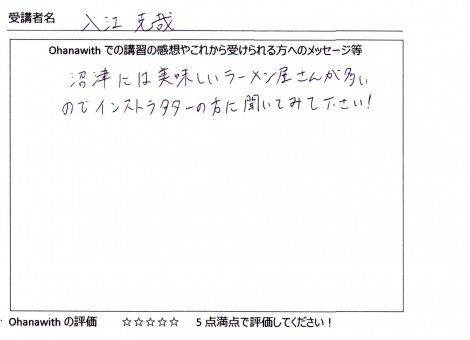 受講者名 入江 克哉
Ohanawith での講習の感想やこれから受けられる方へのメッセージ等
沼津には美味しいラーメン屋さんが多い
のでインストラクターの方に聞いてみて下さい!
Ohanawith の評価 ☆☆☆☆☆ 5 点満点で評価してください!